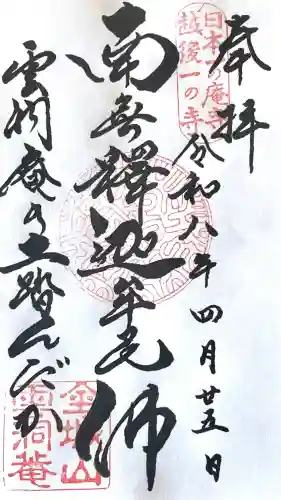 奉拝
日本一の庵寺
越後一の寺
令和八年四月廿五日
南無釋迦牟尼佛
雲洞庵の土踏んだか
金城山
雲洞庵